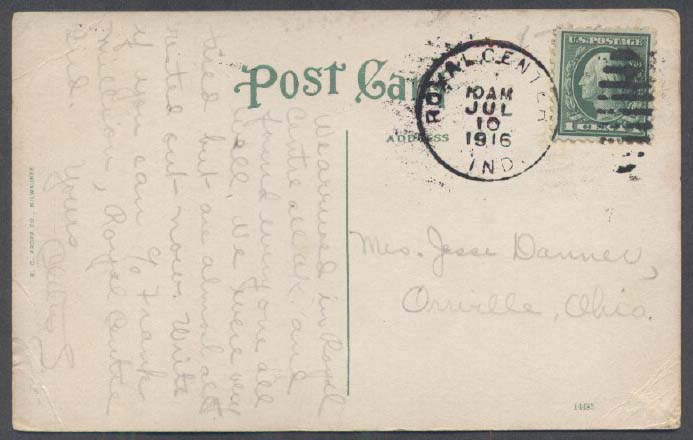 POST CARD
ADDRESS
ROYAL CENTER
10 AM
JUL
10
1916
IND.
U.S. POSTAGE
1 CENT 1
We arrived in Royal
Centre all O.K. and
found everyone all
well, We were very
tired but are almost all
rested out now. Write
if you can c/o Frank
Royal Centre
Ind
Yours
Mrs. Jesse Danner,
Orrville, Ohio.
E. C. KROPP CO., MILWAUKEE
14495